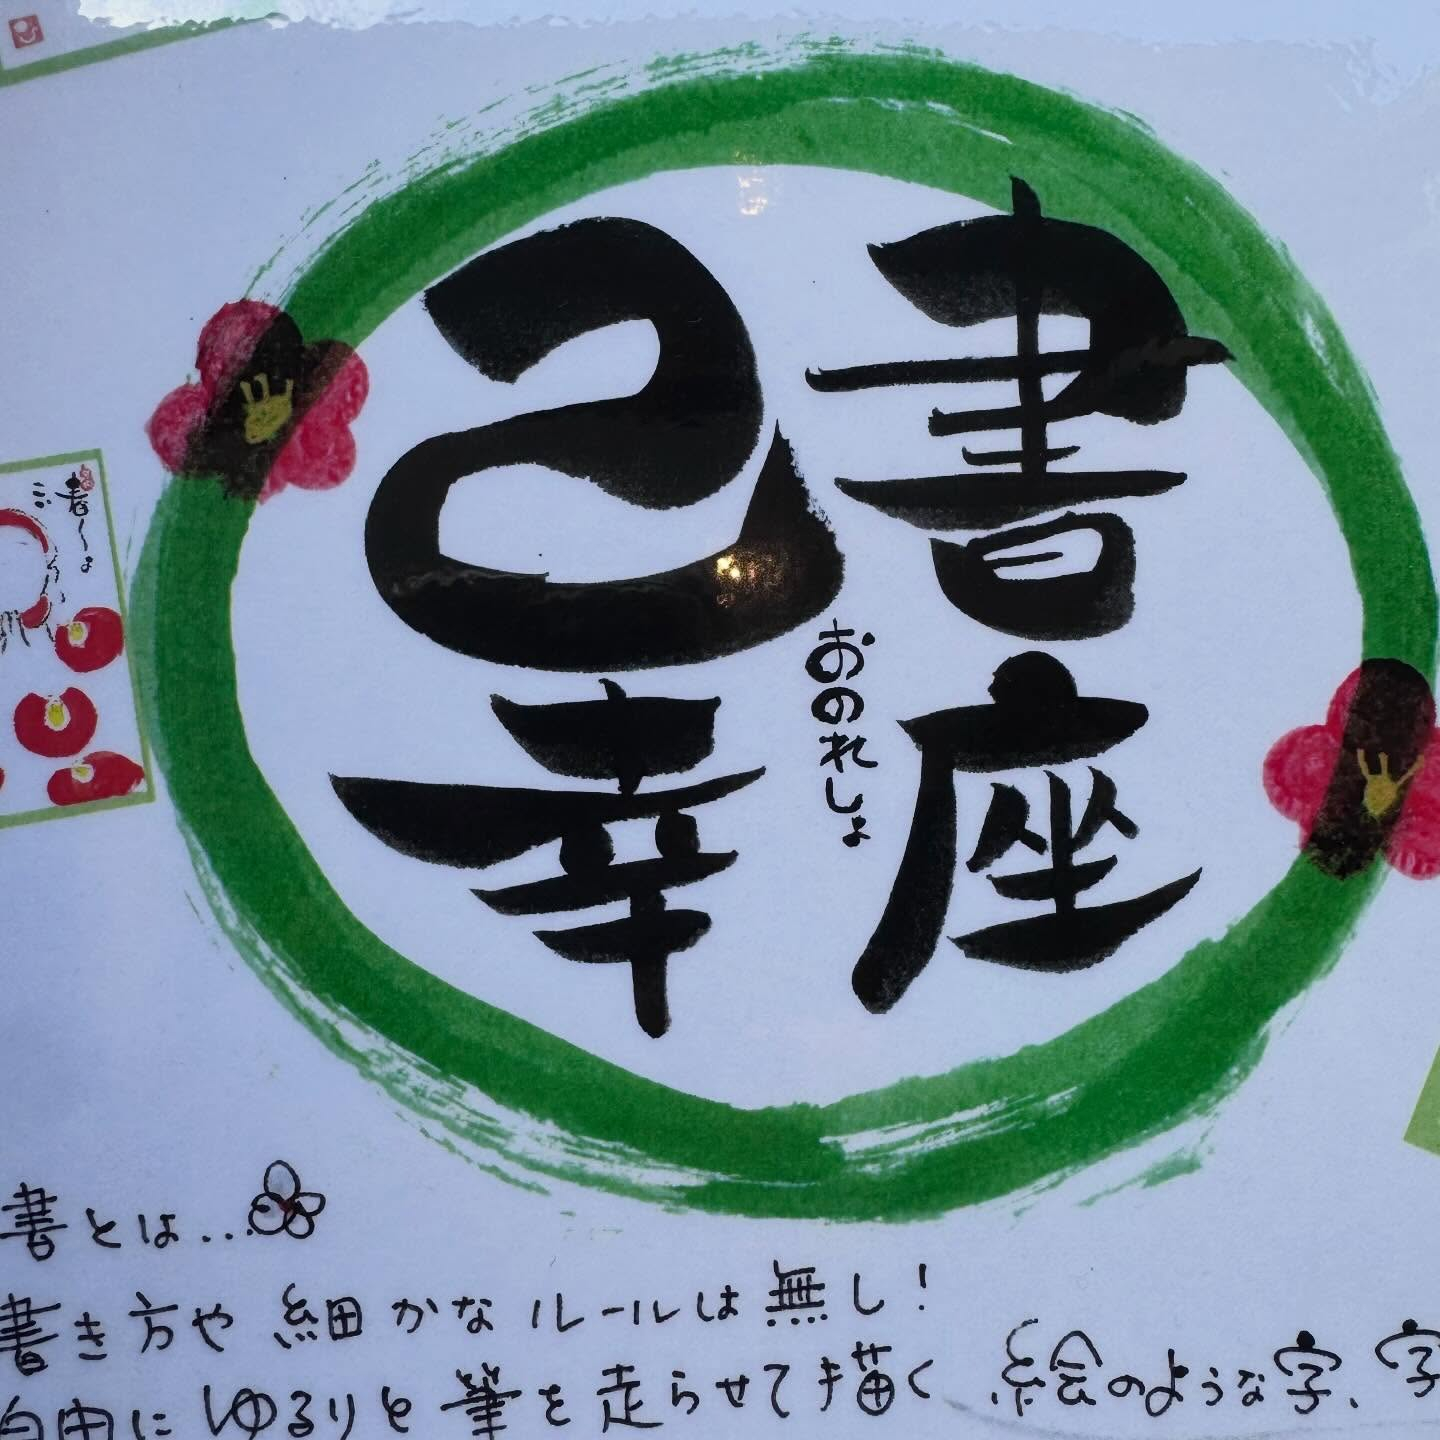 己書
幸座
おのれしょ
書とは...
書き方や細かなルールは無し！
自由にゆるりと筆を走らせて描く 絵のような字、字